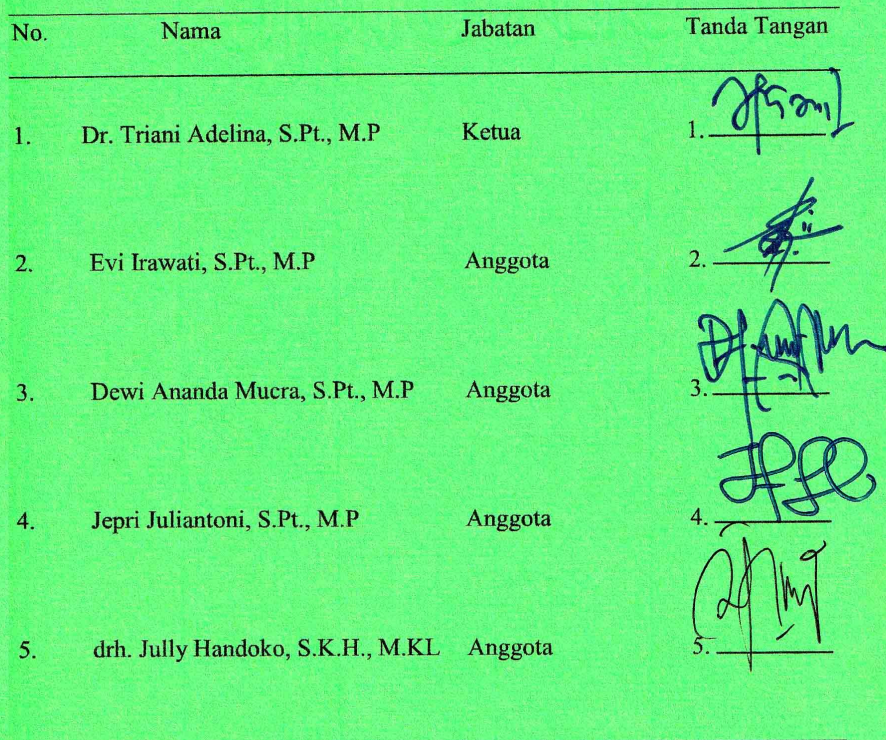 No. Nama Jabatan Tanda Tangan
1. Dr. Triani Adelina, S.Pt., M.P Ketua 1.
2. Evi Irawati, S.Pt., M.P Anggota 2.
3. Dewi Ananda Mucra, S.Pt., M.P Anggota 3.
4. Jepri Juliantoni, S.Pt., M.P Anggota 4.
5. drh. Jully Handoko, S.K.H., M.KL Anggota 5.